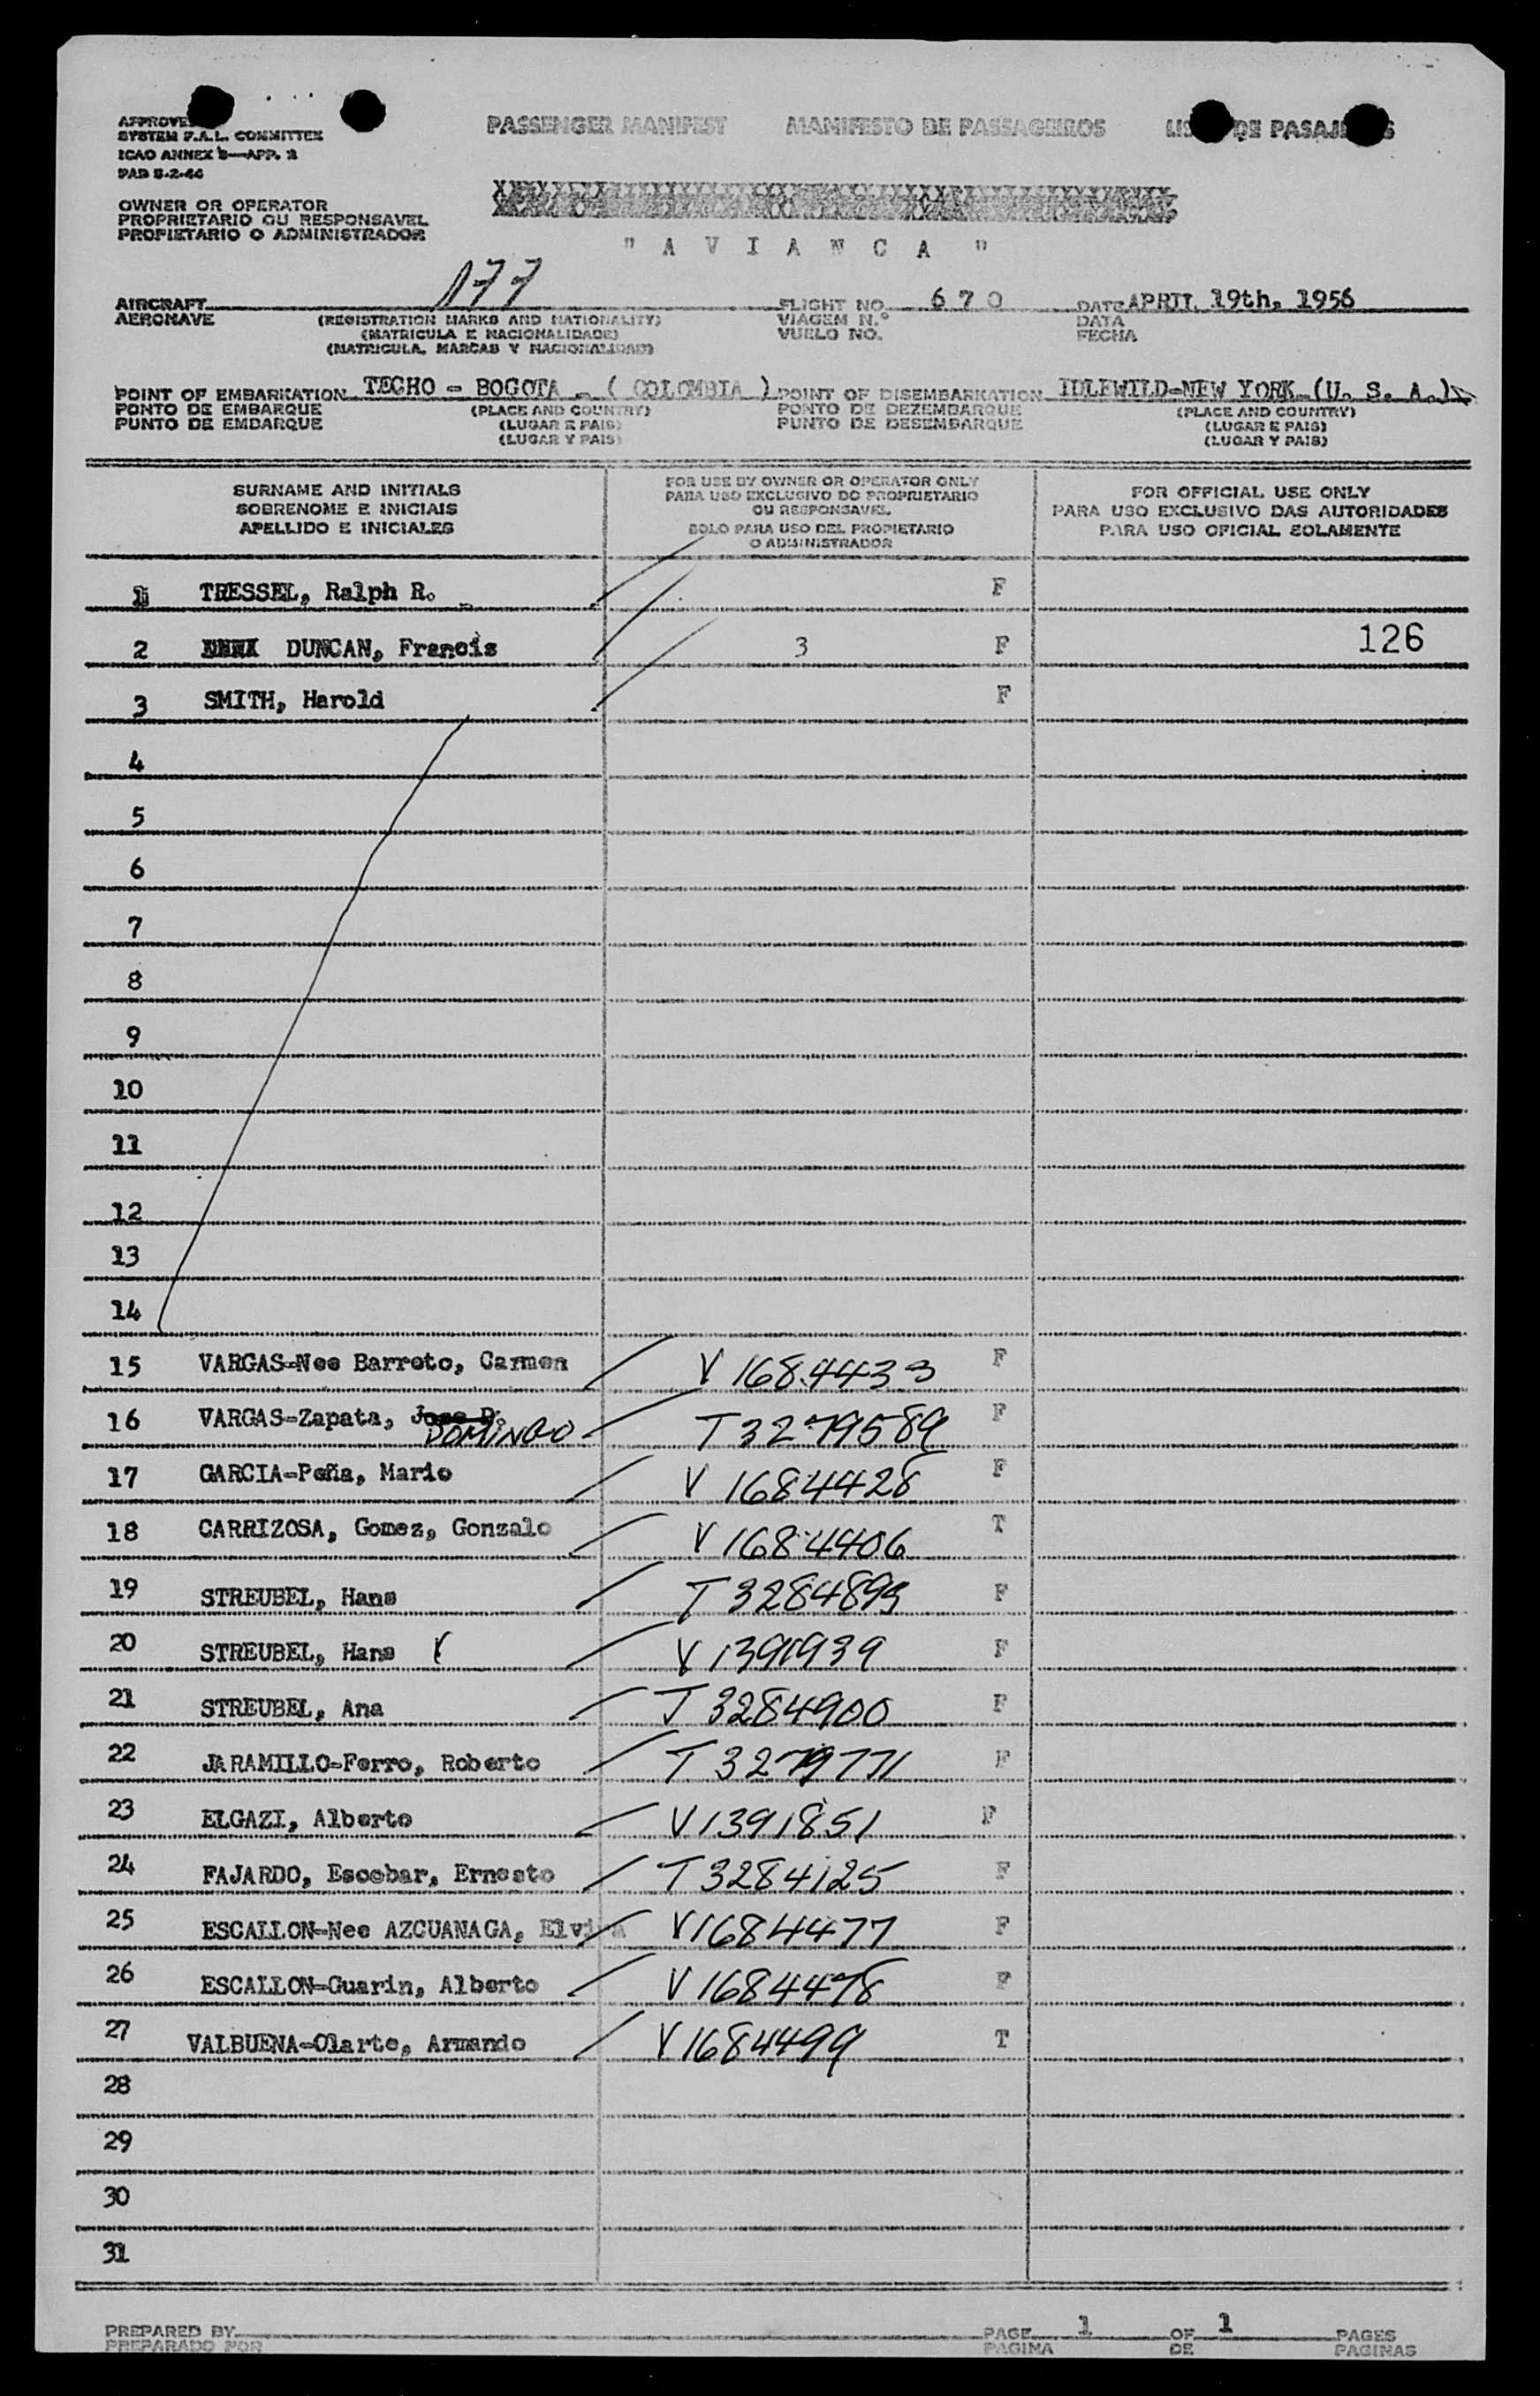 APPROVED
SYSTEM F.A.L. COMMITTEE
ICAO ANNEX 9—APP. 2
PAD 8-2-46
PASSENGER MANIFEST MANIFESTO DE PASSAGEIROS DE
OWNER OR OPERATOR
PROPRIETARIO OU RESPONSAVEL
PROPIETARIO O ADMINISTRADOR
" A V I A N C A "
AIRCRAFT 177 FLIGHT NO. 670 DATE APRIL 19th, 1956
AERONAVE (REGISTRATION MARKS AND NATIONALITY) VIAGEM N.º DATA
(MATRICULA E NACIONALIDADE) VUELO NO. FECHA
(MATRICULA, MARCAS Y NACIONALIDAD)
POINT OF EMBARKATION TECHO - BOGOTA - ( COLOMBIA ) POINT OF DISEMBARKATION IDLEWILD-NEW YORK-(U. S. A.)
PONTO DE EMBARQUE (PLACE AND COUNTRY) PONTO DE DEZEMBARQUE (PLACE AND COUNTRY)
PUNTO DE EMBARQUE (LUGAR E PAIS) PUNTO DE DESEMBARQUE (LUGAR E PAIS)
(LUGAR Y PAIS) (LUGAR Y PAIS)
SURNAME AND INITIALS
SOBRENOME E INICIAIS
APELLIDO E INICIALES
FOR USE BY OWNER OR OPERATOR ONLY
PARA USO EXCLUSIVO DO PROPRIETARIO
OU RESPONSAVEL
SOLO PARA USO DEL PROPIETARIO
O ADMINISTRADOR
FOR OFFICIAL USE ONLY
PARA USO EXCLUSIVO DAS AUTORIDADES
PARA USO OFICIAL SOLAMENTE
1 TRESSEL, Ralph R. F
2 DUNCAN, Francis 3 F 126
3 SMITH, Harold F
4
5
6
7
8
9
10
11
12
13
14
15 VARGAS-Nee Barreto, Carmen V 1684433 F
16 VARGAS-Zapata, Jose D. DOMINGO T 3279589 F
17 GARCIA-Peña, Mario V 1684428 F
18 CARRIZOSA, Gomez, Gonzalo V 1684406 T
19 STREUBEL, Hans T 3284899 F
20 STREUBEL, Hans V 1391939 F
21 STREUBEL, Ana T 3284900 F
22 JARAMILLO-Ferro, Roberto T 3279771 F
23 ELGAZI, Alberto V 1391851 F
24 FAJARDO, Escobar, Ernesto T 3284125 F
25 ESCALLON-Nee AZCUANAGA, Elvira V1684477 F
26 ESCALLON-Guarin, Alberto V 1684478 F
27 VALBUENA-Olarte, Armando V 1684499 T
28
29
30
31
PREPARED BY PAGE 1 OF 1 PAGES
PREPARADO POR PAGINA DE PAGINAS